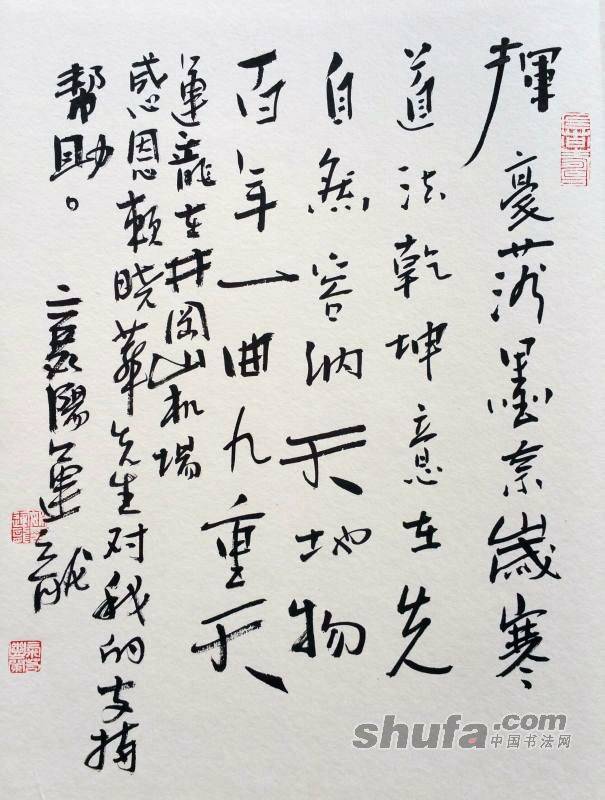 揮毫落墨奈歲寒
道法乾坤意在先
自然容纳天地物
百年一曲九重天
運龍在井冈山机場
感恩赖晓華先生对我的支持
帮助。
襄陽運龍
shufa.com
中国书法网